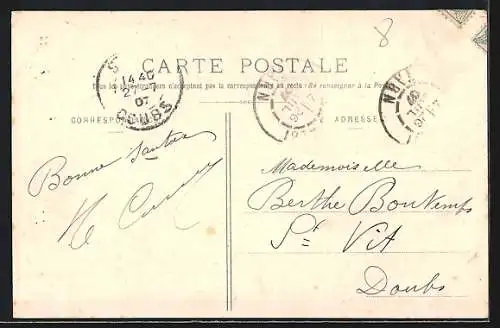 8
CARTE POSTALE
Tous les pays étrangers n'acceptent pas la correspondance au recto - Se renseigner à la Poste
CORRESPONDANCE
ADRESSE
14 40
07
DOUBS
Bonne Santée
Mademoiselle
Berthe Bontemps
St Vit
Doubs